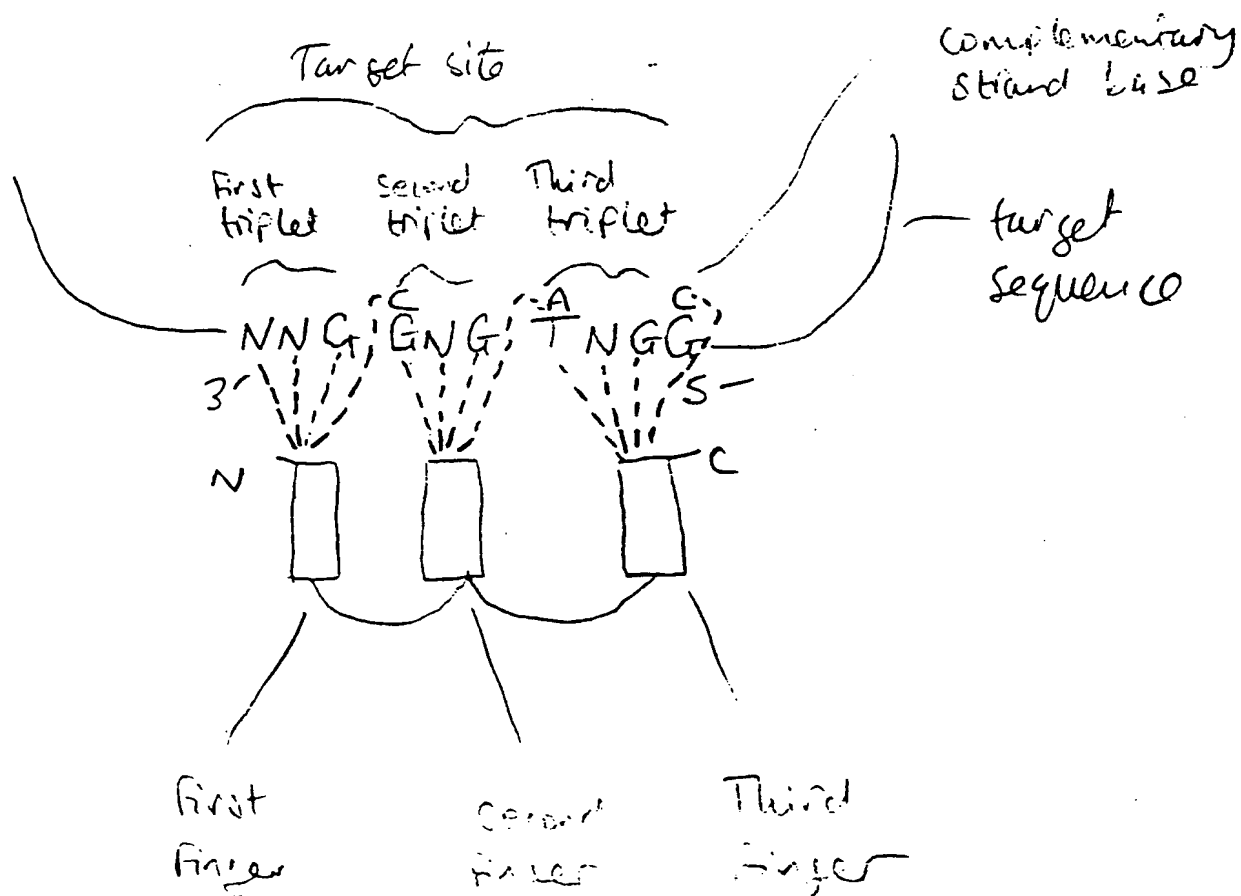 Target site
complementary
strand base
First
triplet
second
triplet
Third
triplet
target
sequence
C
A
C
NNG GNG TNGG
3'
5
N
C
First
Finger
second
finger
Third
finger